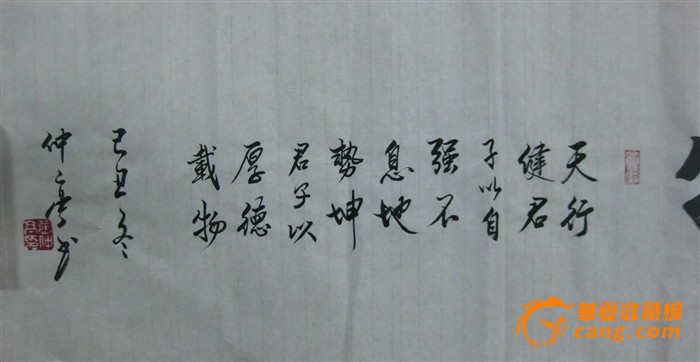 天行
健君
子以自
强不
息地
勢坤
君子以
厚德
載物
己丑冬
仲亭书
華夏收藏網
cang.com